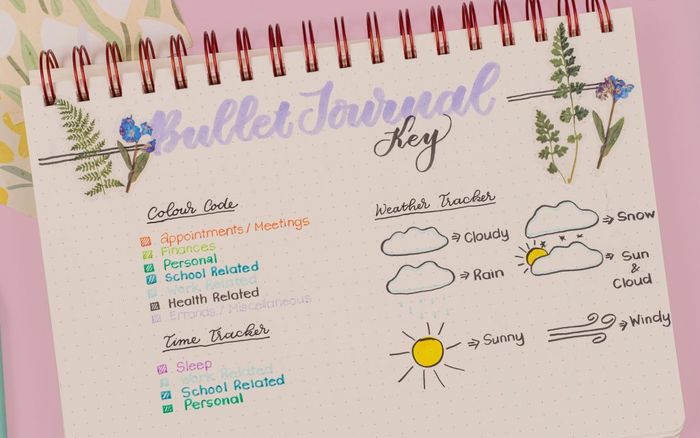 Bullet Journal
Key
Colour Code
Appointments / Meetings
Finances
Personal
School Related
Work Related
Health Related
Errands / Miscellaneous
Time Tracker
Sleep
Work Related
School Related
Personal
Weather Tracker
Cloudy
Rain
Sunny
Snow
Sun
&
Cloud
Windy